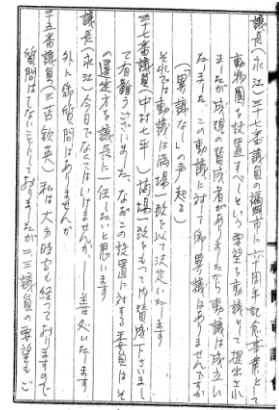 議長(永江)三十七番議員の福岡市に六十周年記念事業として
動物園を設置すべしという要望を動議として提出され
ましたが成規の賛成者がありましたから動議は成立い
たました この動議に対して御異議はありませんですか
(異議なしの声起る)
それでは動議は満場一致をもって決定いたします
三十七番議員(中村七平)満場一致をもって御賛成下さいまし
て有難うございました、なおこの設置に対する委員はそ
の選定方を議長に一任したいと思います
議長(永江)今日でなくてはいけませんか、善処いたします
外に御質問はありませんか
三十五番議員(三苫欽英)私は大分時間も経っておりますので
質問はしないことにしておりましたが二、三議員の要望もご